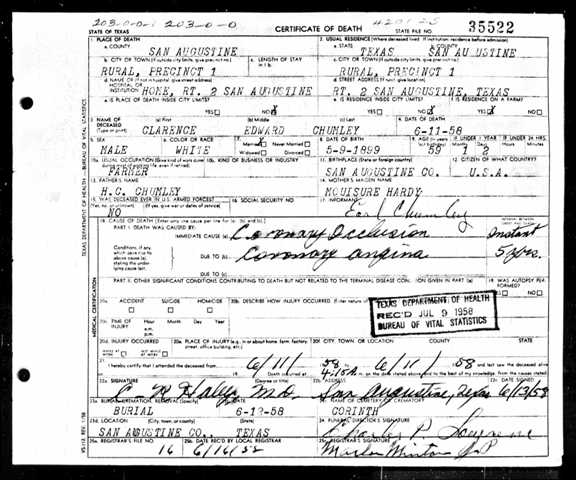 203-0-0-1 203-0-0
STATE OF TEXAS
CERTIFICATE OF DEATH
STATE FILE NO.
35522
1. PLACE OF DEATH
a. COUNTY
SAN AUGUSTINE
2. USUAL RESIDENCE (Where deceased lived. If institution: residence before admission)
a. STATE
TEXAS
b. COUNTY
SAN AU USTINE
b. CITY OR TOWN (If outside city limits, give precinct no.)
RURAL, PRECINCT 1
c. LENGTH OF STAY
c. CITY OR TOWN (If outside city limits, give precinct no.)
RURAL, PRECINCT 1
d. NAME OF (If not in hospital, give street address)
HOSPITAL OR
INSTITUTION
HOME, RT. 2 SAN AUGUSTINE
d. STREET ADDRESS (If rural, give location)
RT. 2 SAN AUGUSTINE, TEXAS
e. IS PLACE OF DEATH INSIDE CITY LIMITS?
YES NO X
e. IS RESIDENCE INSIDE CITY LIMITS?
YES NO X
f. IS RESIDENCE ON A FARM?
YES X NO
3. NAME OF DECEASED
(Type or print)
(a) First
CLARENCE
(b) Middle
EDWARD
(c) Last
CHUMLEY
4. DATE OF DEATH
6-11-58
5. SEX
MALE
6. COLOR OR RACE
WHITE
7. Married X Never Married
Widowed Divorced
8. DATE OF BIRTH
5-9-1899
9. AGE
59
IF UNDER 1 YEAR
1 2
IF UNDER 24 HRS.
10a. USUAL OCCUPATION
FARMER
10b. KIND OF BUSINESS OR INDUSTRY
11. BIRTHPLACE
SAN AUGUSTINE CO.
12. CITIZEN OF WHAT COUNTRY?
U.S.A.
13. FATHER'S NAME
H.C. CHUMLEY
14. MOTHER'S MAIDEN NAME
MOUISURE HARDY
15. WAS DECEASED EVER IN U.S. ARMED FORCES?
(If yes, give war or dates of service)
NO
16. SOCIAL SECURITY NO.
17. INFORMANT
Chumley
18. CAUSE OF DEATH (Enter only one cause per line for (a), (b), and (c).)
PART I. DEATH WAS CAUSED BY:
IMMEDIATE CAUSE (a)
Coronary Occlusion
Instant
Conditions, if any, which gave rise to above cause (a), stating the underlying cause last.
DUE TO (b)
Coronary angina
5 yrs.
DUE TO (c)
PART II. OTHER SIGNIFICANT CONDITIONS CONTRIBUTING TO DEATH BUT NOT RELATED TO THE TERMINAL DISEASE CONDITION GIVEN IN PART I (a)
19. WAS AUTOPSY PERFORMED?
YES NO
20a.
ACCIDENT SUICIDE HOMICIDE
20b. DESCRIBE HOW INJURY OCCURRED.
TEXAS DEPARTMENT OF HEALTH
REC'D JUL 9 1958
BUREAU OF VITAL STATISTICS
20c. TIME OF INJURY
Hour Month Day Year
a.m.
p.m.
20d. INJURY OCCURRED
20e. PLACE OF INJURY (e.g. in or about home, farm, factory, street, office building, etc.)
20f. CITY TOWN, OR LOCATION
COUNTY
STATE
21. I hereby certify that I attended the deceased from
6/11 58 6/11 58
22a. SIGNATURE
(Degree or title)
M.D.
22b. ADDRESS
San Augustine, Texas
22c. DATE SIGNED
23a. BURIAL, CREMATION, REMOVAL (Specify)
BURIAL
23b. DATE
6-12-58
23c. NAME OF CEMETERY OR CREMATORY
CORINTH
23d. LOCATION
SAN AUGUSTINE CO., TEXAS
24. FUNERAL DIRECTOR'S SIGNATURE
25a. REGISTRAR'S FILE NO.
16
25b. DATE REC'D BY LOCAL REGISTRAR
25c. REGISTRAR'S SIGNATURE
TEXAS DEPARTMENT OF HEALTH - BUREAU OF VITAL STATISTICS
MEDICAL CERTIFICATION